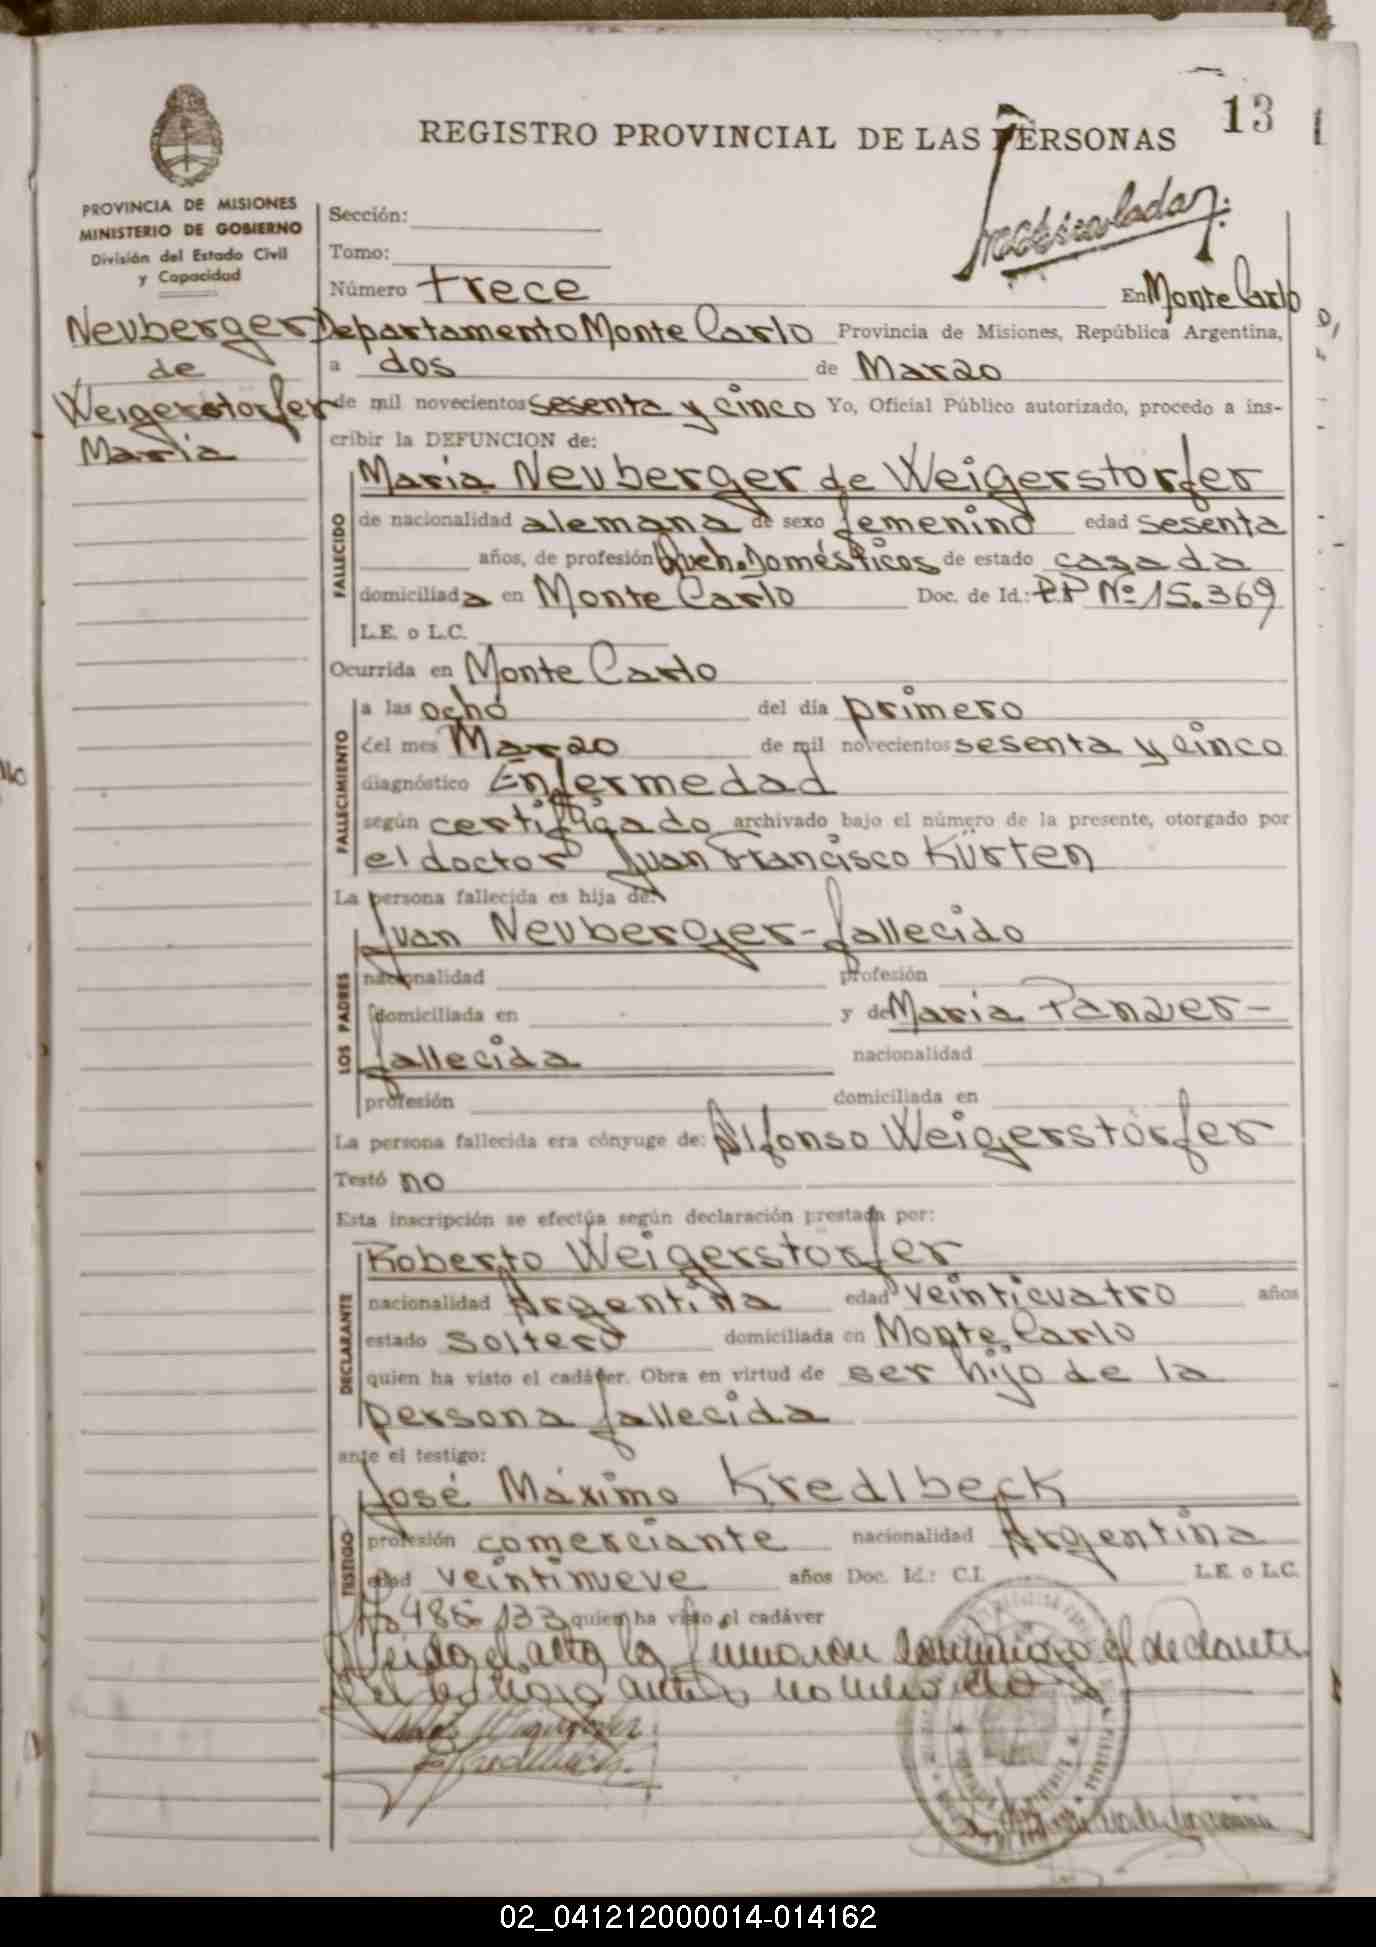 13
REGISTRO PROVINCIAL DE LAS PERSONAS
PROVINCIA DE MISIONES
MINISTERIO DE GOBIERNO
División del Estado Civil
y Capacidad
Neuberger
de
Weigerstorfer
Maria
Sección:
Tomo:
Número trece En Monte Carlo
Departamento Monte Carlo Provincia de Misiones, República Argentina,
a dos de Marzo
de mil novecientos sesenta y cinco Yo, Oficial Público autorizado, procedo a ins-
cribir la DEFUNCION de:
FALLECIDO
Maria Neuberger de Weigerstorfer
de nacionalidad alemana de sexo femenino edad sesenta
años, de profesión Queh. Domésticos de estado casada
domiciliada en Monte Carlo Doc. de Id.: P.P Nº 15.369
L.E. o L.C.
Ocurrida en Monte Carlo
FALLECIMIENTO
a las ocho del día primero
del mes Marzo de mil novecientos sesenta y cinco
diagnóstico Enfermedad
según certificado archivado bajo el número de la presente, otorgado por
el doctor Juan Francisco Kürten
La persona fallecida es hija de:
LOS PADRES
Juan Neuberger - fallecido
nacionalidad profesión
domiciliada en y de Maria Panzer -
fallecida nacionalidad
profesión domiciliada en
La persona fallecida era cónyuge de: Alfonso Weigerstorfer
Testó no
Esta inscripción se efectúa según declaración prestada por:
DECLARANTE
Roberto Weigerstorfer
nacionalidad Argentina edad veinticuatro años
estado soltero domiciliada en Monte Carlo
quien ha visto el cadáver. Obra en virtud de ser hijo de la
persona fallecida
ante el testigo:
TESTIGO
José Máximo Kredlbeck
profesión comerciante nacionalidad Argentina
edad veintinueve años Doc. Id.: C.I. L.E. o L.C.
quien ha visto el cadáver
el acta la firmaron conmigo el declarante
02_041212000014-014162